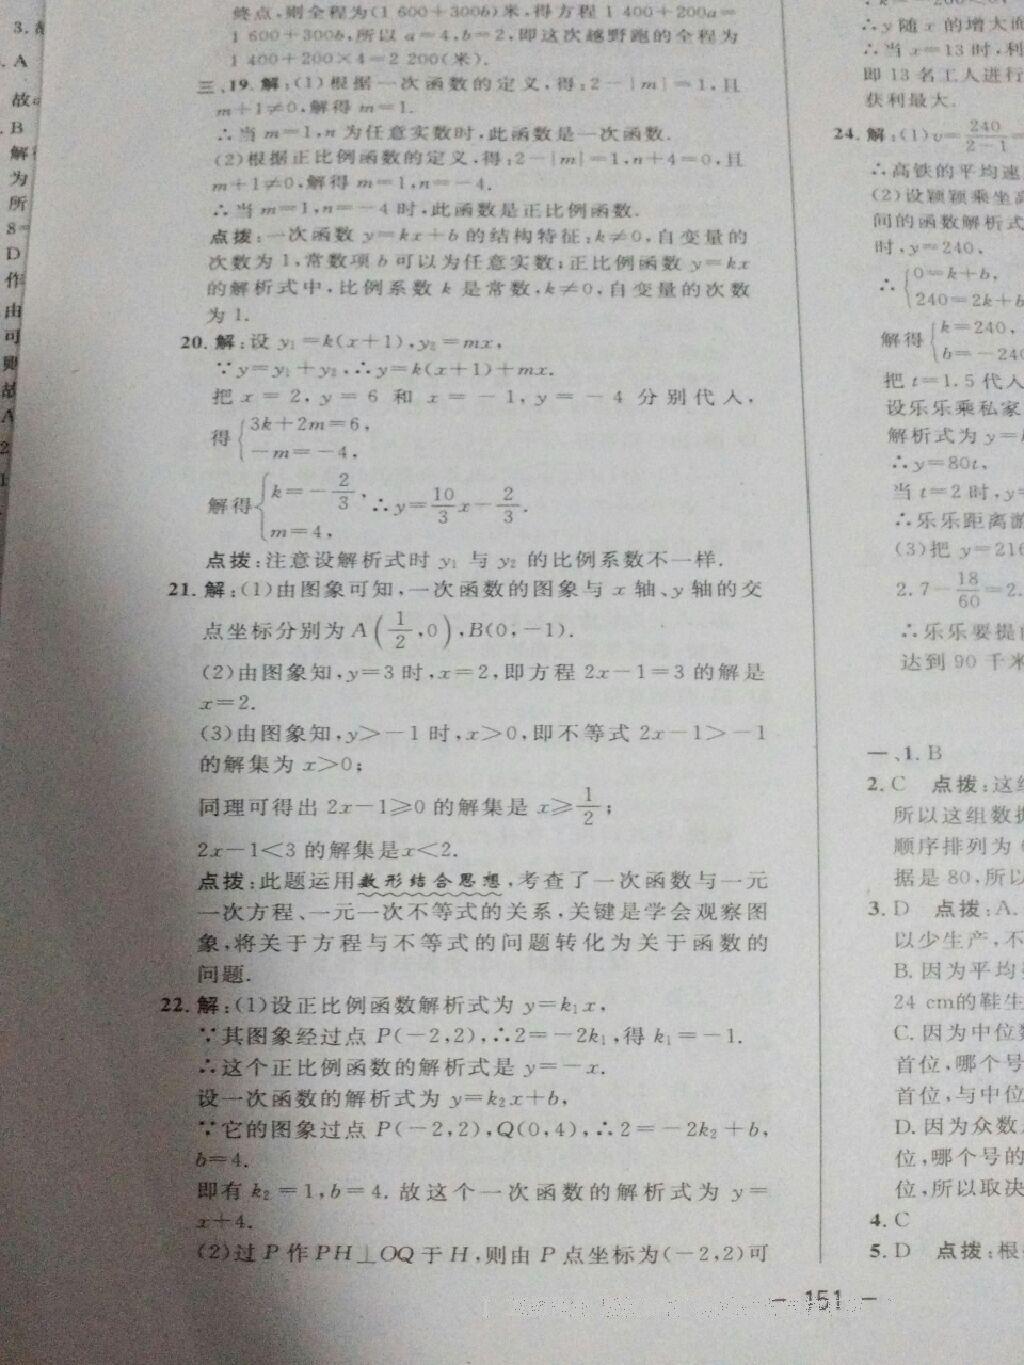 3.
A
故
B
解
为
所
8=
D
作
由
可
则
故
A
2
1
终点,则全程为(1 600+300b)米,得方程 1 400+200a=
1 600+300b,所以 a=4,b=2,即这次越野跑的全程为
1 400+200×4=2 200(米).
三、19.解:(1)根据一次函数的定义,得:2-|m|=1,且
m+1≠0,解得 m=1.
∴当 m=1,n 为任意实数时,此函数是一次函数.
(2)根据正比例函数的定义,得:2-|m|=1,n+4=0,且
m+1≠0,解得 m=1,n=-4.
∴当 m=1,n=-4 时,此函数是正比例函数.
点拨:一次函数 y=kx+b 的结构特征:k≠0,自变量的
次数为 1,常数项 b 可以为任意实数;正比例函数 y=kx
的解析式中,比例系数 k 是常数,k≠0,自变量的次数
为 1.
20.解:设 y₁=k(x+1),y₂=mx,
∵y=y₁+y₂,∴y=k(x+1)+mx.
把 x=2,y=6 和 x=-1,y=-4 分别代入,
得{3k+2m=6,
-m=-4,
解得{k=-2/3,∴y=10/3x-2/3.
m=4,
点拨:注意设解析式时 y₁ 与 y₂ 的比例系数不一样.
21.解:(1)由图象可知,一次函数的图象与 x 轴、y 轴的交
点坐标分别为 A(1/2,0),B(0,-1).
(2)由图象知,y=3 时,x=2,即方程 2x-1=3 的解是
x=2.
(3)由图象知,y>-1 时,x>0,即不等式 2x-1>-1
的解集为 x>0;
同理可得出 2x-1≥0 的解集是 x≥1/2;
2x-1<3 的解集是x<2.
点拨:此题运用数形结合思想,考查了一次函数与一元
一次方程、一元一次不等式的关系,关键是学会观察图
象,将关于方程与不等式的问题转化为关于函数的
问题.
22.解:(1)设正比例函数解析式为 y=k₁x,
∵其图象经过点 P(-2,2),∴2=-2k₁,得 k₁=-1.
∴这个正比例函数的解析式是 y=-x.
设一次函数的解析式为 y=k₂x+b,
∵它的图象过点 P(-2,2),Q(0,4),∴2=-2k₂+b,
b=4.
即有 k₂=1,b=4.故这个一次函数的解析式为 y=
x+4.
(2)过 P 作 PH⊥OQ 于 H,则由 P 点坐标为(-2,2)可
∴y 随 x 的增大而
∴当 x=13 时,利
即 13 名工人进行
获利最大.
24.解:(1)v=240/2-1=
∴高铁的平均速
(2)设颖颖乘坐高
间的函数解析式
时,y=240.
∴{0=k+b,
240=2k+b
解得{k=240,
b=-240
把 t=1.5 代入
设乐乐乘私家
解析式为 y=
∴y=80t,
当 t=2 时,y=
∴乐乐距离游
(3)把 y=216
2.7-18/60=2.
∴乐乐要提
达到 90 千米
一、1.B
2.C 点拨:这组
所以这组数据
顺序排列为
据是 80,所以
3.D 点拨:A.
以少生产,不
B.因为平均
24 cm的鞋生
C.因为中位数
首位,哪个号
首位,与中位
D.因为众数
位,哪个号的
位,所以取决
4.C
5.D 点拨:根
- 151 -